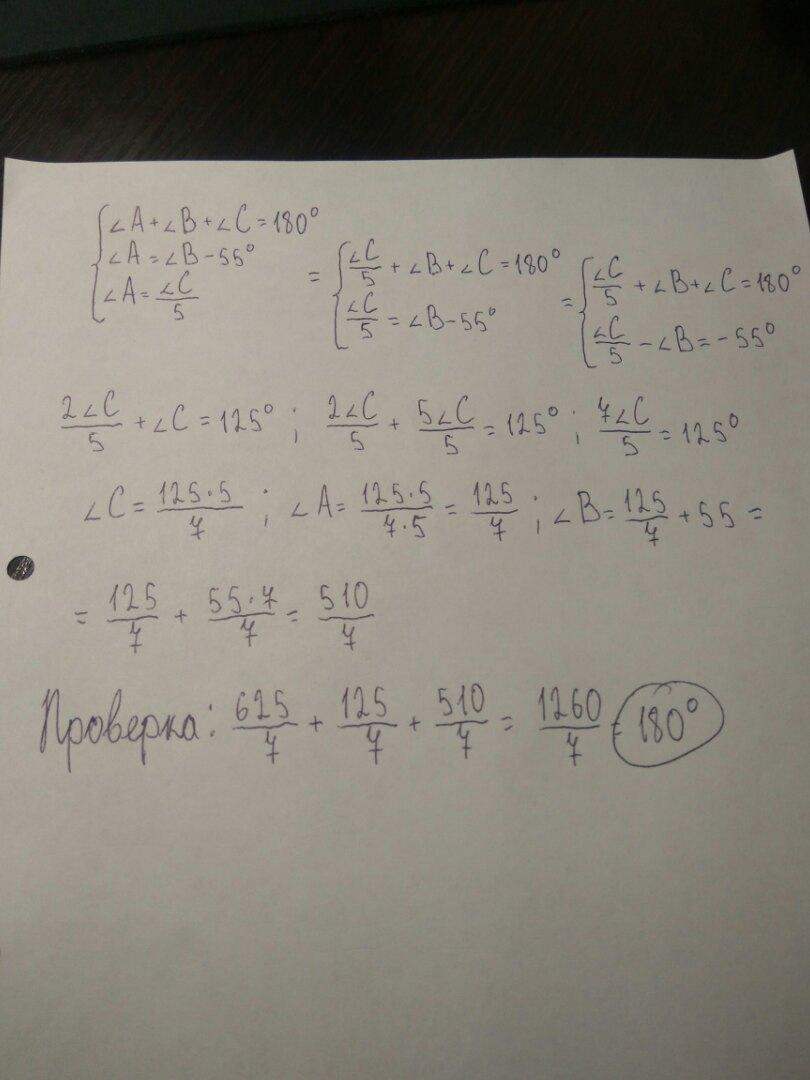 ∠A+∠B+∠C=180°
∠A=∠B-55°
∠A=∠C/5
= ∠C/5 + ∠B+∠C=180°
∠C/5 = ∠B-55°
= ∠C/5 + ∠B+∠C=180°
∠C/5 - ∠B = -55°
2∠C/5 + ∠C = 125° ; 2∠C/5 + 5∠C/5 = 125° ; 7∠C/5 = 125°
∠C = 125·5/7 ; ∠A = 125·5/7·5 = 125/7 ; ∠B = 125/7 + 55 =
= 125/7 + 55·7/7 = 510/7
Проверка: 625/7 + 125/7 + 510/7 = 1260/7 = 180°